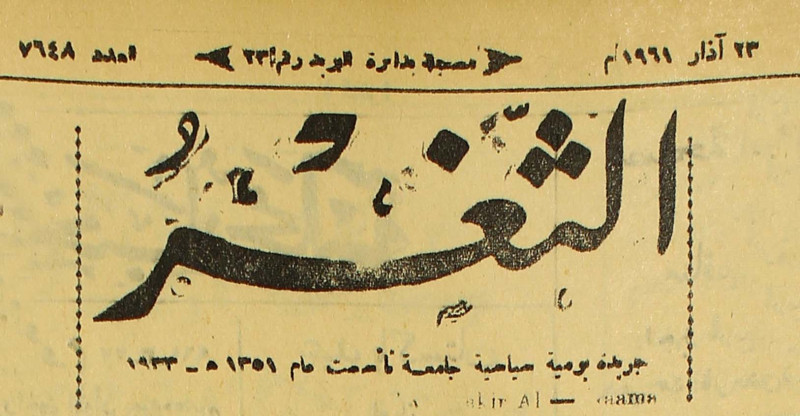 ٢٣ آذار ١٩٦١ م مسجلة بدائرة البريد رقم ٢٣ العدد ٧٦٤٨
الثغر
جريدة يومية سياسية جامعة تأسست عام ١٣٥١ ه ـ ١٩٣٣
Al —